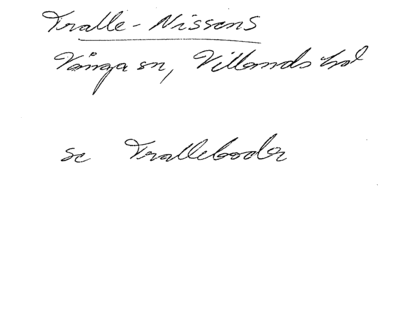 Tralle-Nissens
Vånga sn, Villands hd
se Tralleboder